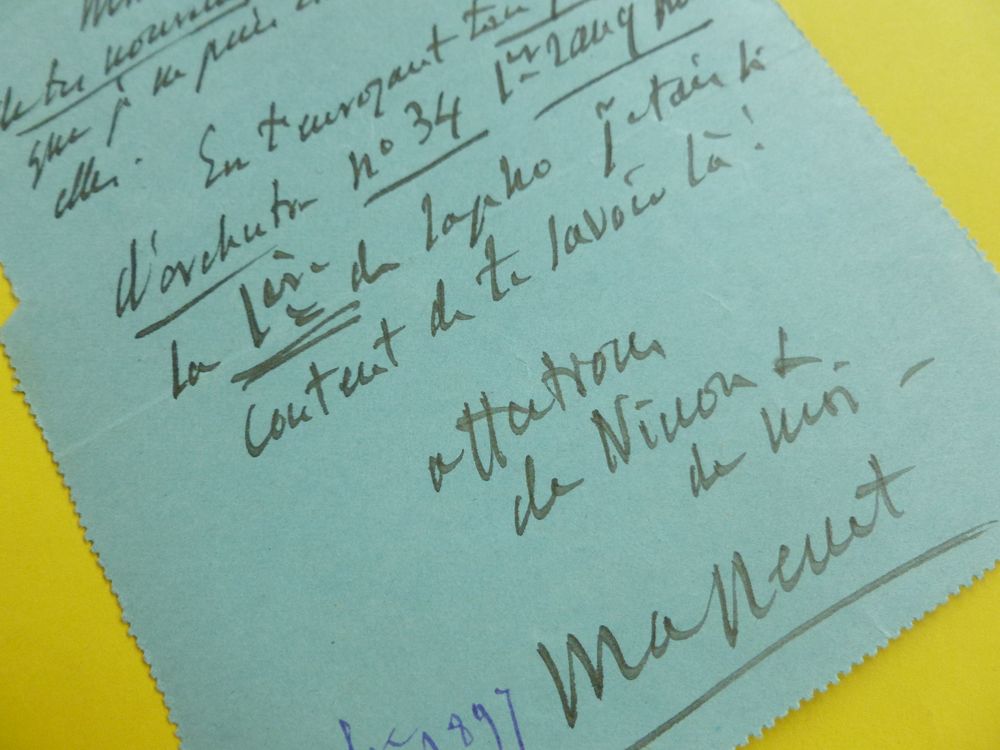 de tes nouvelles
que je ne puis
elle. En t'envoyant ton
d'orchestre n° 34 1er rang
la 1ère de Sapho j'étais si
content de te savoir là !
affections
de Ninon &
de moi –
Massenet
1897